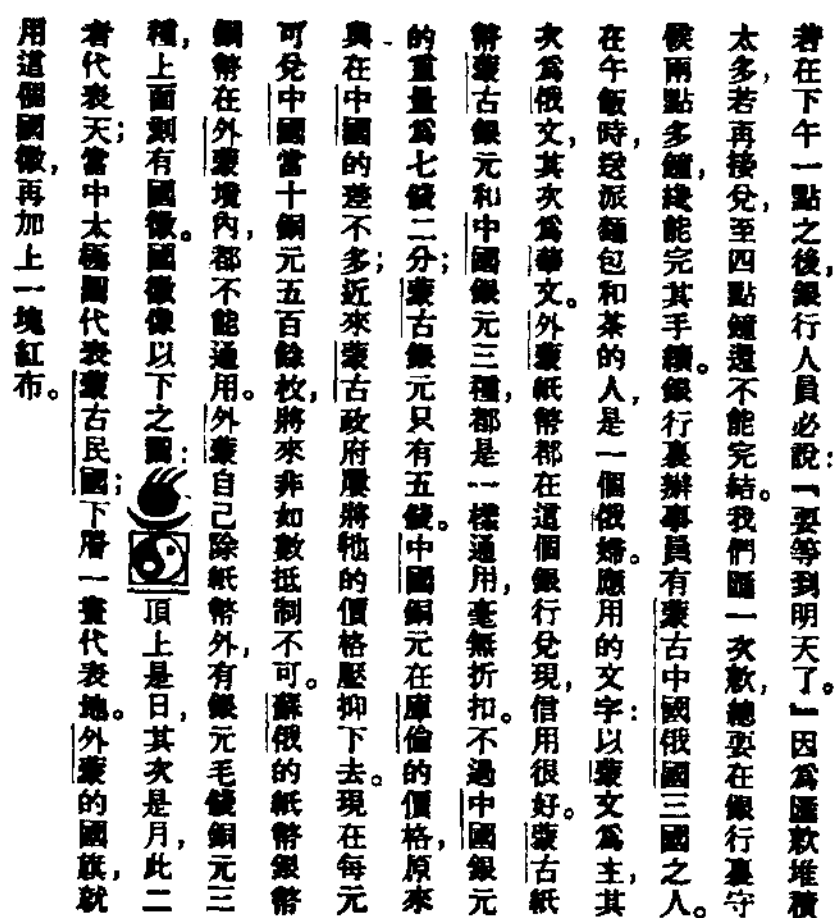 若在下午一點之後，銀行人員必說：「要等到明天了。」因爲匯款堆積
太多，若再接兌，至四點鐘還不能完結。我們匯一次款，總要在銀行裏守
候兩點多鐘，纔能完其手續。銀行裏辦事員有蒙古中國俄國三國之人。
在午飯時，送派麵包和茶的人，是一個俄婦。應用的文字：以蒙文爲主，其
次爲俄文，其次爲華文。外蒙紙幣都在這個銀行兌現，信用很好。蒙古紙
幣蒙古銀元和中國銀元三種，都是一樣通用，毫無折扣。不過中國銀元
的重量爲七錢二分；蒙古銀元只有五錢。中國銅元在庫倫的價格，原來
與在中國的差不多；近來蒙古政府屢將牠的價格壓抑下去。現在每元
可兌中國當十銅元五百餘枚，將來非如數抵制不可。蘇俄的紙幣銀幣
銅幣在外蒙境內，都不能通用。外蒙自己除紙幣外，有銀元毛錢銅元三
種，上面刻有國徽。國徽像以下之圖：頂上是日，其次是月，此二
者代表天；當中太極圖代表蒙古民國；下層一畫代表地。外蒙的國旗，就
用這個國徽，再加上一塊紅布。